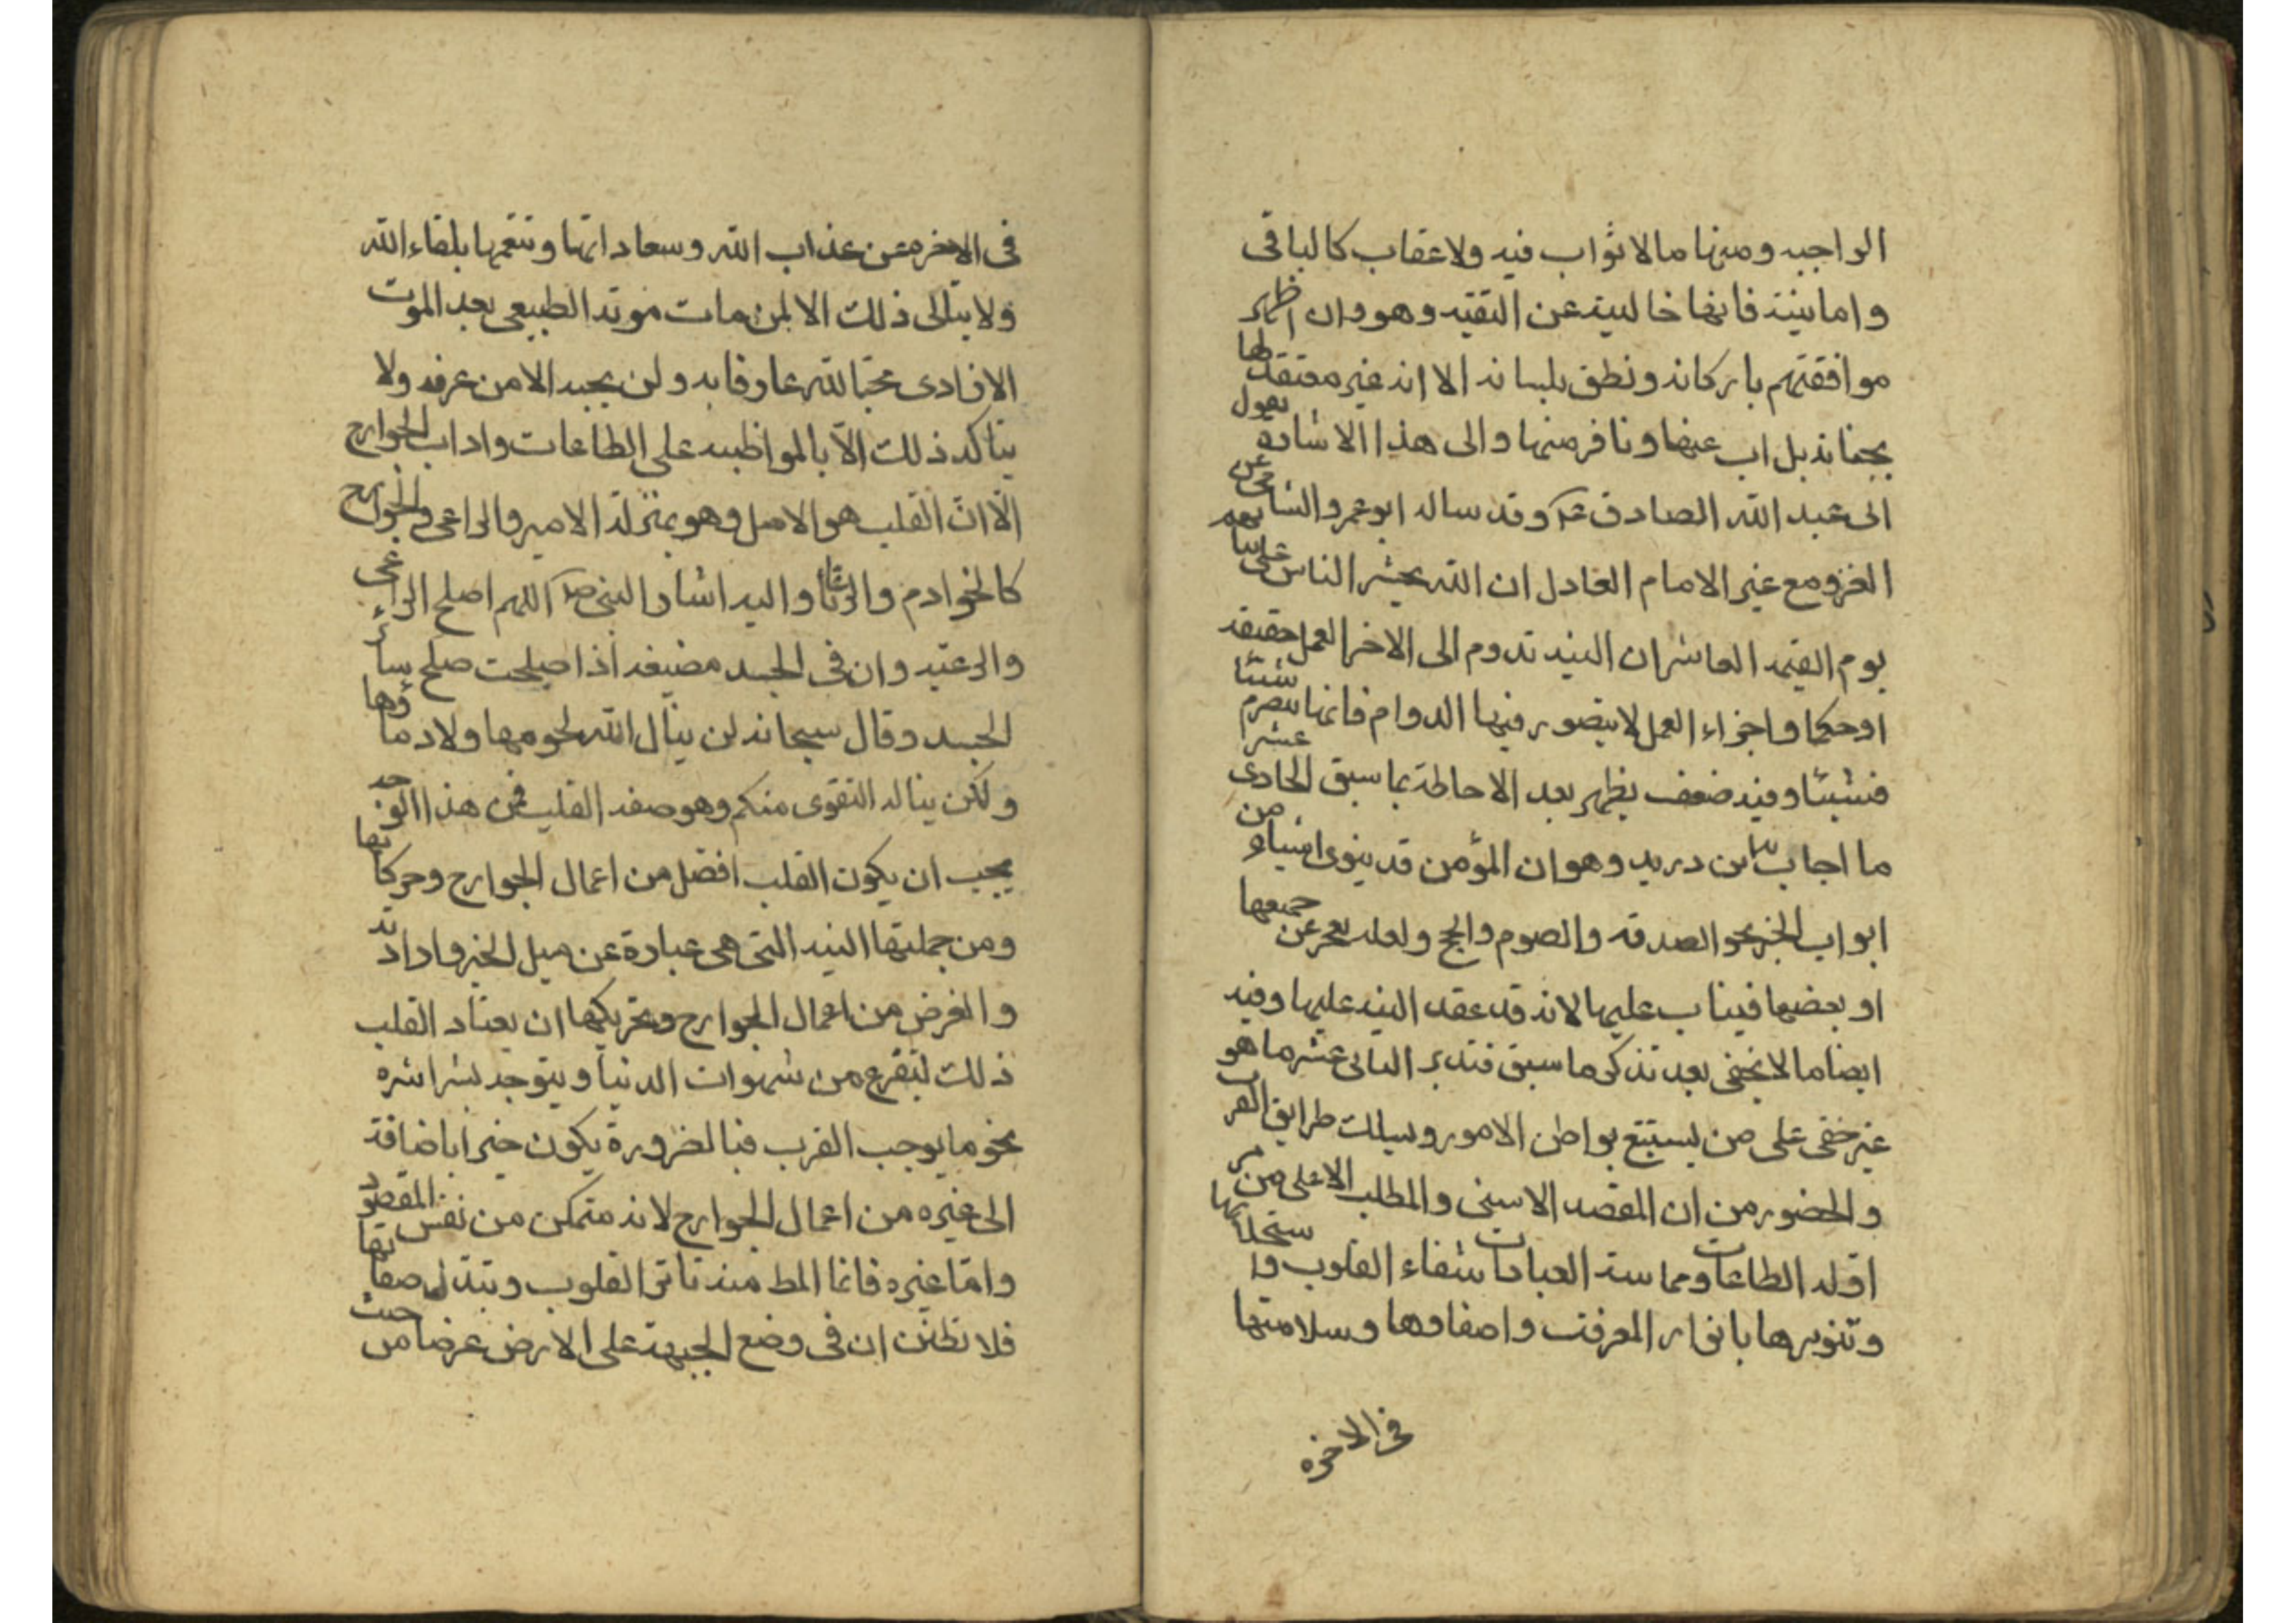 الواجبه ومنها ما لا ثواب فيه ولا عقاب كالباقى
واما نيته فانها خالية عن التقيه وهو وان اظهر
موافقتهم باركانه ونطق بلسانه الا انه غير معتقد لها
بجنانه بل اب عنها ونافر منها والى هذا الاشارة بقول
ابى عبد الله الصادق ع وقد ساله ابو عمرو الشامى عن
الغزو مع غير الامام العادل ان الله يحشر الناس على نياتهم
يوم القيمه العاشر ان النيه تدوم الى الاخر العمل حقيقه
او حكما واجزاء العمل لا يتصور فيها الدوام فانها تتصرم شيئا
فشيئا وفيه ضعف يظهر بعد الاحاطة بما سبق الحادى عشر
ما اجاب به ابن دريد وهو ان المؤمن قد ينوى اشياء من
ابواب الخير نحو الصدقه والصوم والحج ولعله يعجز عن جميعها
او بعضها فيثاب عليها لانه قد عقد النيه عليها وفيه
ايضا ما لا يخفى بعد تذكر ما سبق فتدبر الثانى عشر ما هو
غير خفى على من يستتبع بواطن الامور وسلك طرايق القرب
والحضور من ان المقصد الاسنى والمطلب الاعلى من
الطاعات وممارسة العبادات شفاء القلوب و
وتنويرها بانوار المعرفت واصفاوها وسلامتها
فى الاخره
فى الاخره من عذاب الله وسعاداتها وتنعمها بلقاء الله
ولا يتالى ذلك الا لمن مات موته الطبيعى بعد الموت
الارادى محبا لله عارفا به ولن يحبه الا من عرفه ولا
يتاكد ذلك الا بالمواظبه على الطاعات واداب الجوارح
الا ان القلب هو الاصل وهو بمنزلة الامير والراعى والجوارح
كالخوادم والرعايا واليه اشار النبى ص اللهم اصلح الراعى
والرعيه وان فى الجسد مضيغه اذا صلحت صلح سائر
الجسد وقال سبحانه لن ينال الله لحومها ولا دماؤها
ولكن يناله التقوى منكم وهو صفه القلب فمن هذا الوجه
يجب ان يكون القلب افضل من اعمال الجوارح وحركاتها
ومن جملتها النيه التى هى عبادة عن ميل الخير وارادته
والغرض من اعمال الجوارح وتحريكها ان يعتاد القلب
ذلك ليتفرع من شهوات الدنيا ويتوجه بشراشره
نحو ما يوجب القرب فبالضرورة يكون خيرا باضافة
الى غيره من اعمال الجوارح لانه متمكن من نفس المقصود
واما غيره فانما المط منه تاثر القلوب وتبدل صفاتها
فلا تظنن ان فى وضع الجبهة على الارض غرضا من حيث